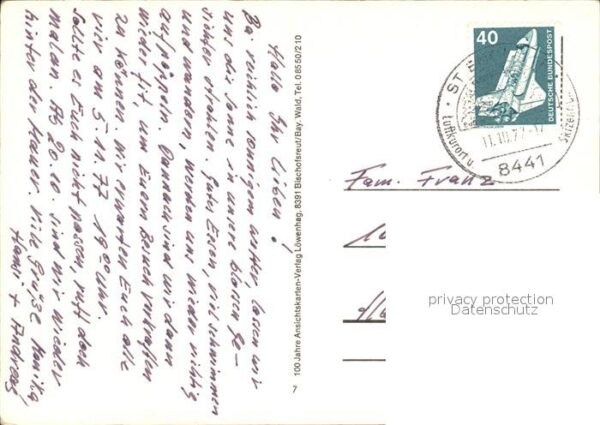 Hallo Ihr Lieben!
Bei reichlich sonnigem Wetter, lassen wir
uns die Sonne in unsere blassen Ge-
sichter strahlen. Gutes Essen, viel schwimmen
und wandern, werden uns wieder richtig
aufpäppeln. Dannach sind wir dann
wieder fit, um Euren Besuch verkraften
zu können. Wir erwarten Euch alle
vier am 5.4.77 19 00 Uhr.
Sollte es Euch nicht passen, ruft doch
mal an. Ab 20.00 sind wir wieder
hinter den Viele Grüße Monika
Hansi + Andreas!
100 Jahre Ansichtskarten-Verlag Löwenhag, 8391 Bischofsreut/Bay. Wald, Tel. 08550/210
7
40
DEUTSCHE BUNDESPOST
ST
Luftkurort u.
Skizentrum
11.III.77-17
8441
Fam. Franz
privacy protection
Datenschutz